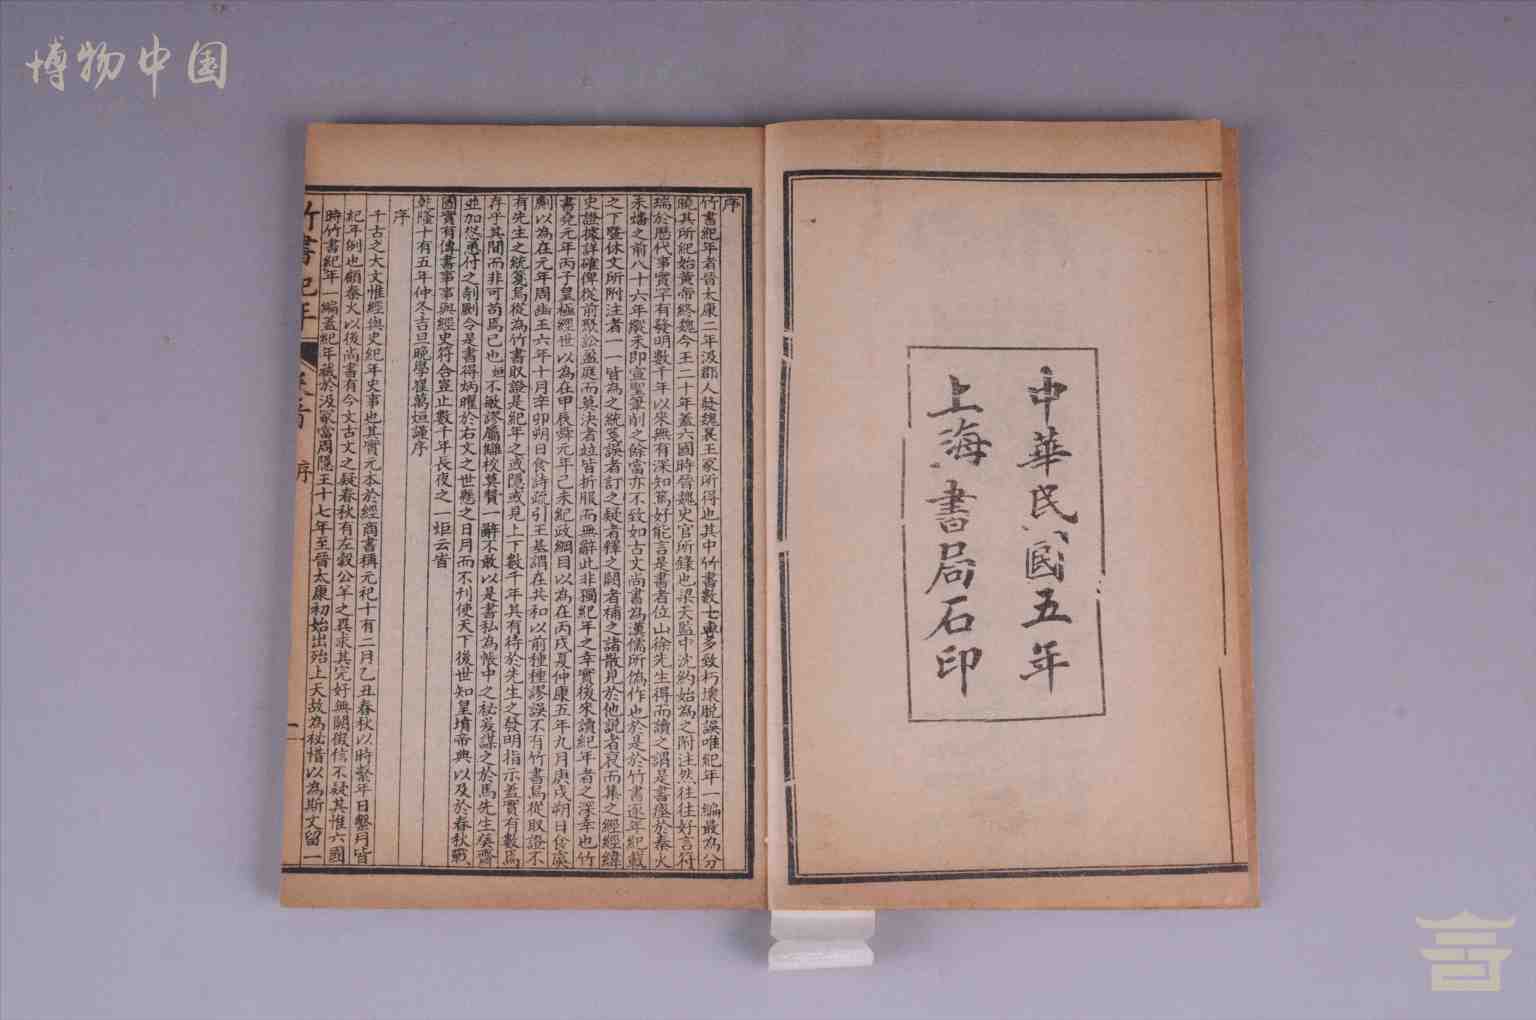 博物中国
中華民國五年
上海書局石印
序
竹書紀年者晉太康二年汲郡人發魏襄王冢所得也其中竹書數十車多致朽壞脫誤唯紀年一編最為分
曉其所紀始黃帝終魏今王二十年蓋六國時晉魏史官所錄也梁天監中沈約始為之附注然往往好言符
瑞於歷代事實罕有發明數千年以來無有深知篤好能言是書者位山徐先生得而讀之謂是書瘞於秦火
未燔之前八十六年縱未即宣聖筆削之餘當亦不致如古文尚書為漢儒所偽作也於是於竹書逐年紀載
之下暨休文所附注者一一皆為之統箋誤者訂之疑者釋之闕者補之諸散見於他說者裒而集之經經緯
史證據詳確俾從前聚訟盈庭而莫決者竝皆折服而無辭此非獨紀年之幸實後來讀紀年者之深幸也竹
書堯元年丙子皇極經世以為在甲辰舜元年己未紀政綱目以為在丙戌夏仲康五年九月庚戌朔日食虞
劇以為在元年周幽王六年十月辛卯朔日食詩疏引王基謂在共和以前種種謬誤不有竹書烏從取證不
有先生之統箋烏從為竹書取證是紀年之或隱或見上下數千年其有待於先生之發明指示蓋實有數焉
存乎其間而非可苟焉已也垣不敏謬屬讎校莫贊一辭不敢以是書私為帳中之秘爰謀之於馬先生葵齋
並加慫恿付之剞劂令是書得炳曜於右文之世懸之日月而不刊使天下後世知皇墳帝典以及於春秋戰
國實有傳書事事與經史符合豈止數千年長夜之一炬云旹
乾隆十有五年仲冬吉旦晚學崔萬烜謹序
序
千古之大文惟經與史紀年史事也其實元本於經商書稱元祀十有二月乙丑春秋以時繫年日繫月皆
紀年例也顧秦火以後尚書有今文古文之疑春秋有左穀公羊之異求其完好無闕傳信不疑其惟六國
時竹書紀年一編蓋紀年藏於汲冢當周隱王十七年至晉太康初始出殆上天故為秘惜以為斯文留一
竹書紀年
序
一